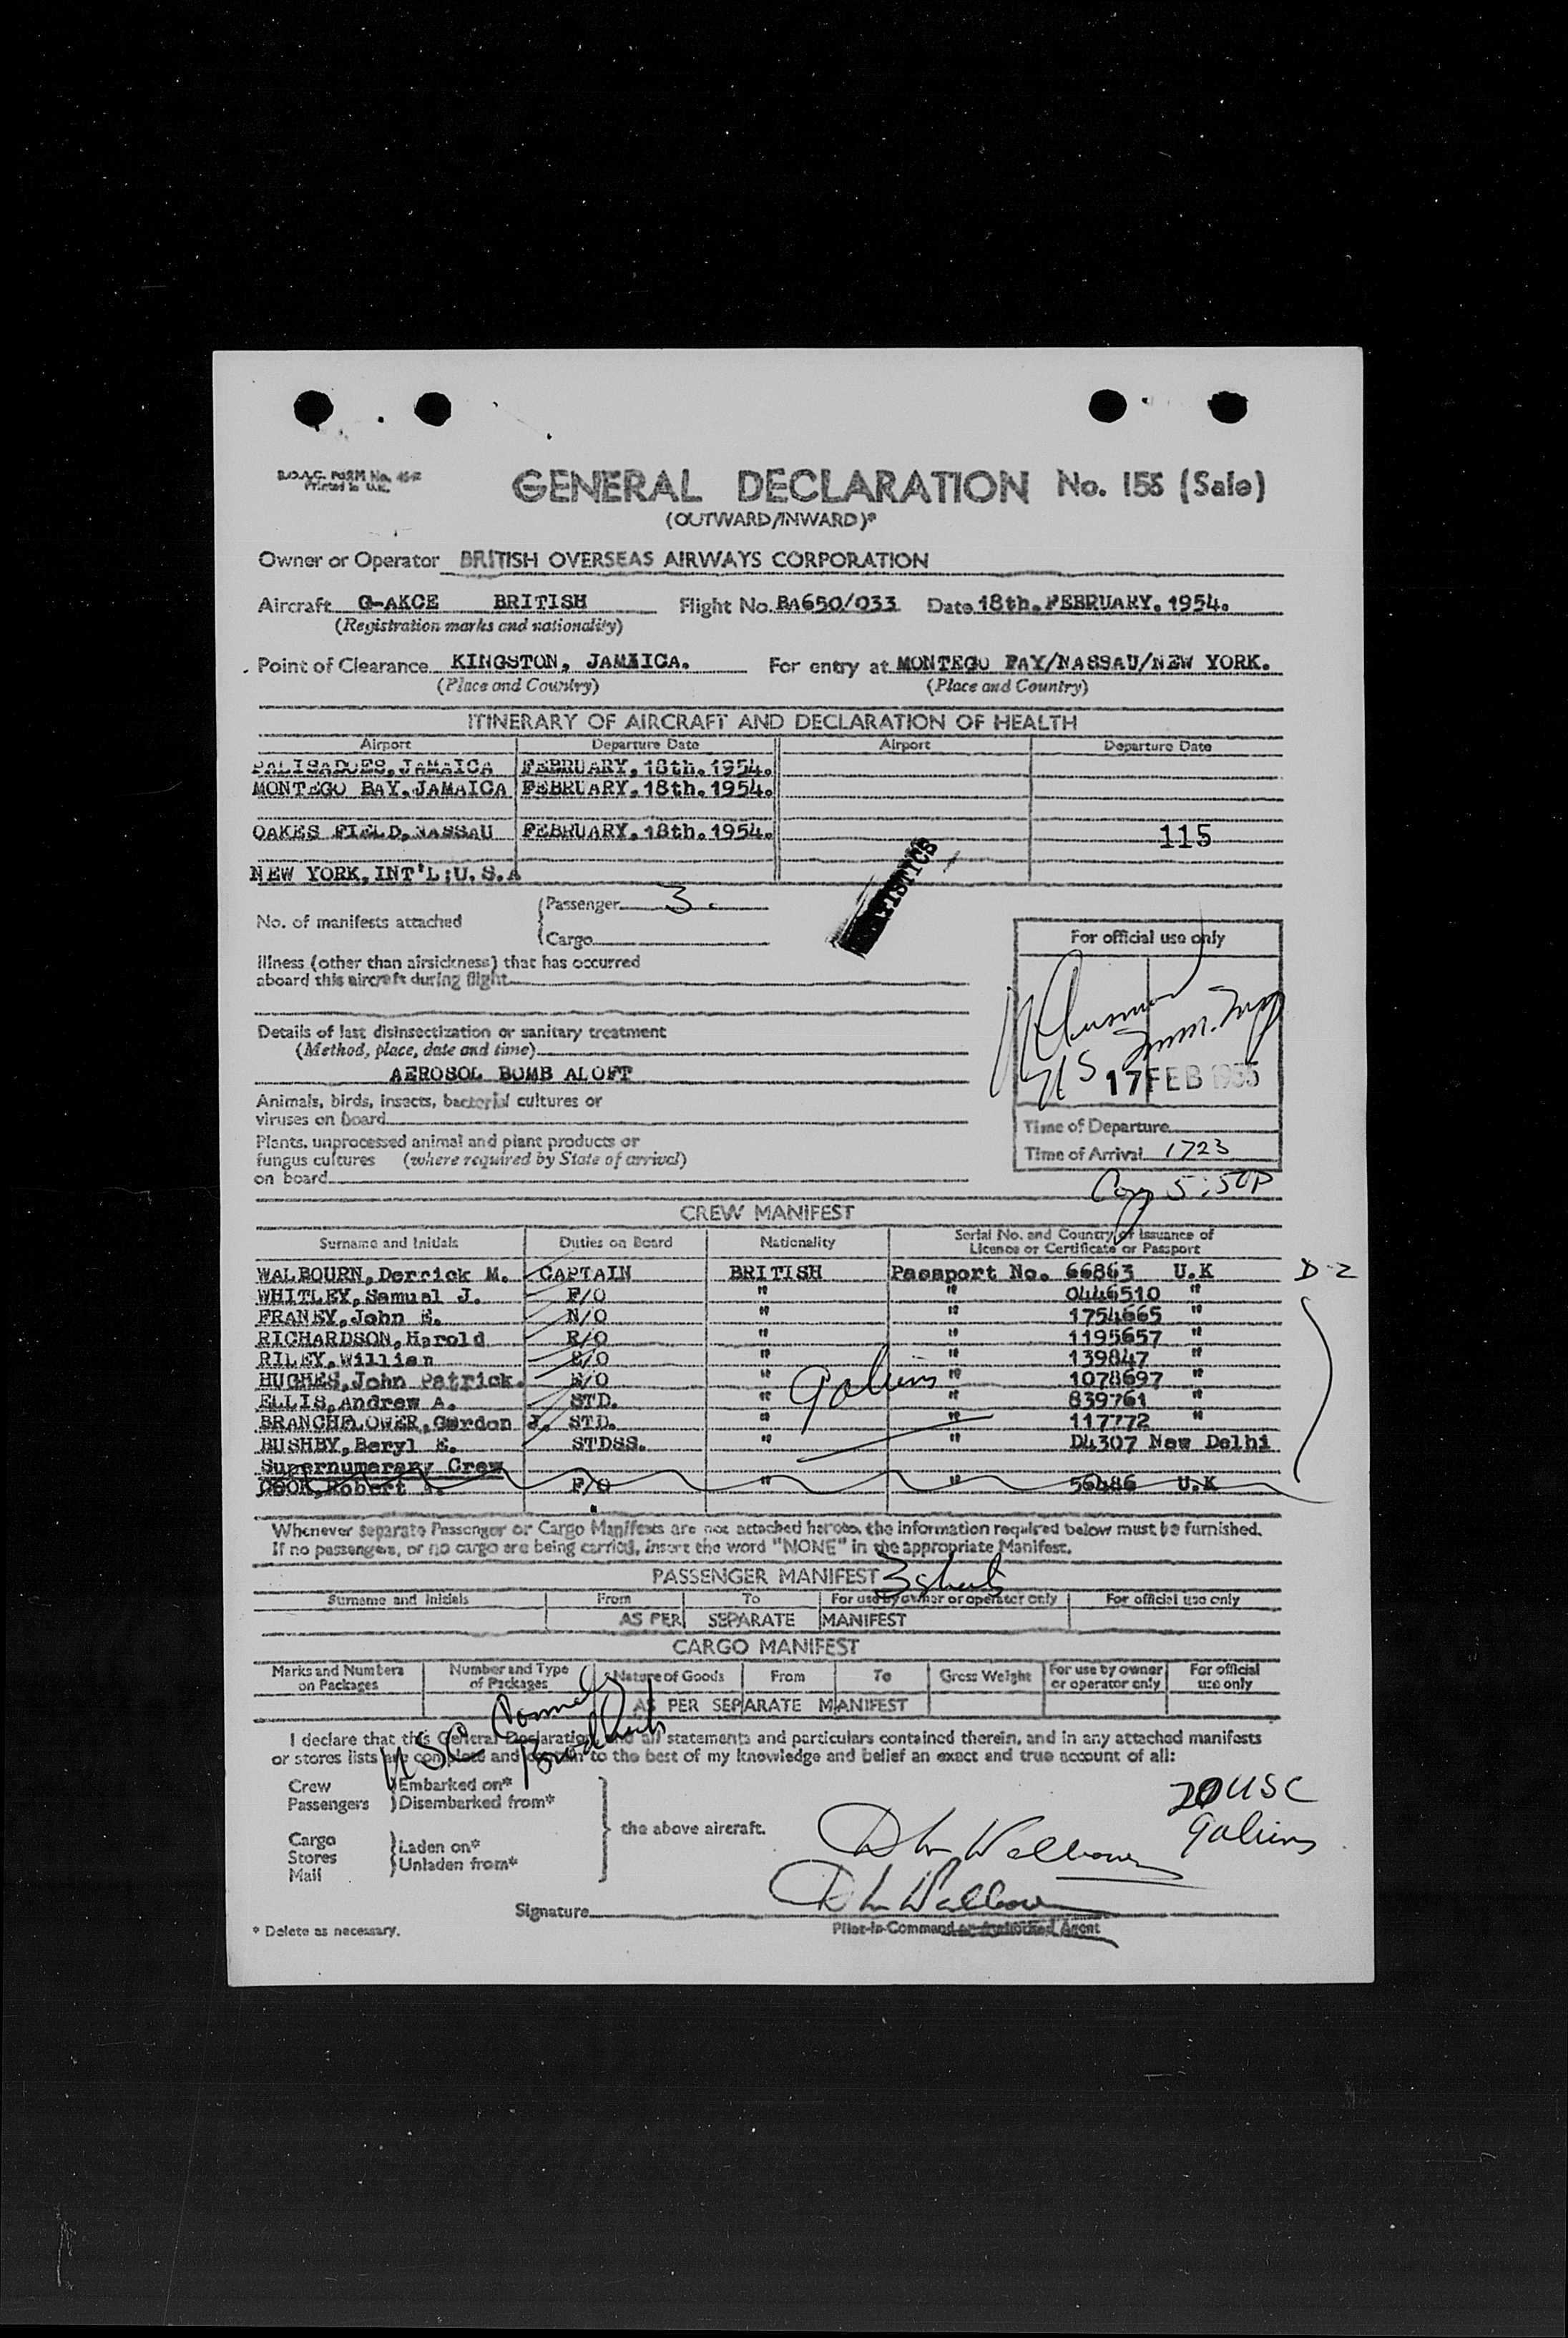 B.O.A.C. FORM No.
Printed in U.K.
GENERAL DECLARATION No. 155 (Sale)
(OUTWARD/INWARD)*
Owner or Operator BRITISH OVERSEAS AIRWAYS CORPORATION
Aircraft G-AKCE BRITISH Flight No. BA650/033 Date 18th. FEBRUARY. 1954.
(Registration marks and nationality)
Point of Clearance KINGSTON, JAMAICA. For entry at MONTEGO BAY/NASSAU/NEW YORK.
(Place and Country) (Place and Country)
ITINERARY OF AIRCRAFT AND DECLARATION OF HEALTH
Airport Departure Date Airport Departure Date
PALISADOES, JAMAICA FEBRUARY. 18th. 1954.
MONTEGO BAY, JAMAICA FEBRUARY. 18th. 1954.
OAKES FIELD, NASSAU FEBRUARY. 18th. 1954. 115
NEW YORK, INT'L; U.S.A
No. of manifests attached
Passenger 3.
Cargo
For official use only
Illness (other than airsickness) that has occurred
aboard this aircraft during flight
Details of last disinsectization or sanitary treatment
(Method, place, date and time)
AEROSOL BOMB ALOFT
17 FEB 1955
Animals, birds, insects, bacterial cultures or
viruses on board
Time of Departure
Plants, unprocessed animal and plant products or
fungus cultures (where required by State of arrival)
on board
Time of Arrival 1723
5:50P
CREW MANIFEST
Surname and Initials Duties on Board Nationality Serial No. and Country of Issuance of
Licence or Certificate or Passport
WALBOURN, Derrick M. CAPTAIN BRITISH Passport No. 66863 U.K D-2
WHITLEY, Samual J. F/O " " 0446510 "
FRANEY, John E. N/O " " 1754665 "
RICHARDSON, Harold R/O " " 1195657 "
RILEY, Willian E/O " " 139847 "
HUGHES, John Patrick. E/O " " 1078697 "
9 aliens
ELLIS, Andrew A. STD. " " 839761 "
BRANCHFLOWER, Gordon J. STD. " " 117772 "
BUSHBY, Beryl E. STDSS. " " D4307 New Delhi
Supernumerary Crew
COOK, Robert F/O " " 56486 U.K
Whenever separate Passenger or Cargo Manifests are not attached hereto, the information required below must be furnished.
If no passengers, or no cargo are being carried, insert the word "NONE" in the appropriate Manifest.
PASSENGER MANIFEST 3 sheets
Surname and Initials From To For use by owner or operator only For official use only
AS PER SEPARATE MANIFEST
CARGO MANIFEST
Marks and Numbers on Packages Number and Type of Packages Nature of Goods From To Gross Weight For use by owner or operator only For official use only
AS PER SEPARATE MANIFEST
I declare that this General Declaration and all statements and particulars contained therein, and in any attached manifests
or stores lists are complete and contain to the best of my knowledge and belief an exact and true account of all:
Crew Embarked on*
Passengers Disembarked from*
the above aircraft.
Cargo
Stores Laden on*
Mail Unladen from*
20 USC
9 aliens
D M Walbourn
D M Walbourn
Signature
Pilot-in-Command or Authorized Agent
* Delete as necessary.